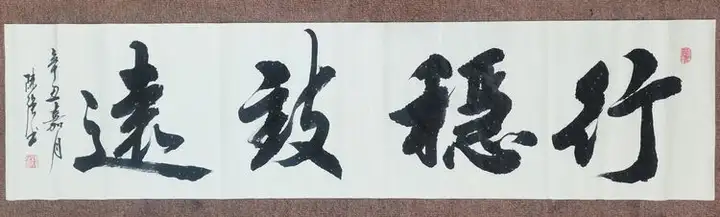 行穩致遠
辛丑嘉月